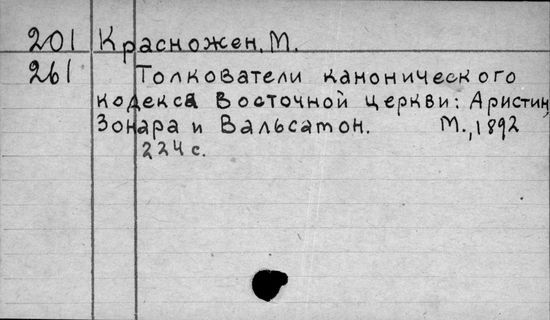 201 Красножен, М.
261 Толкователи канонического
кодекса Восточной церкви: Аристин,
Зонара и Вальсатон. М., 1892
224 с.